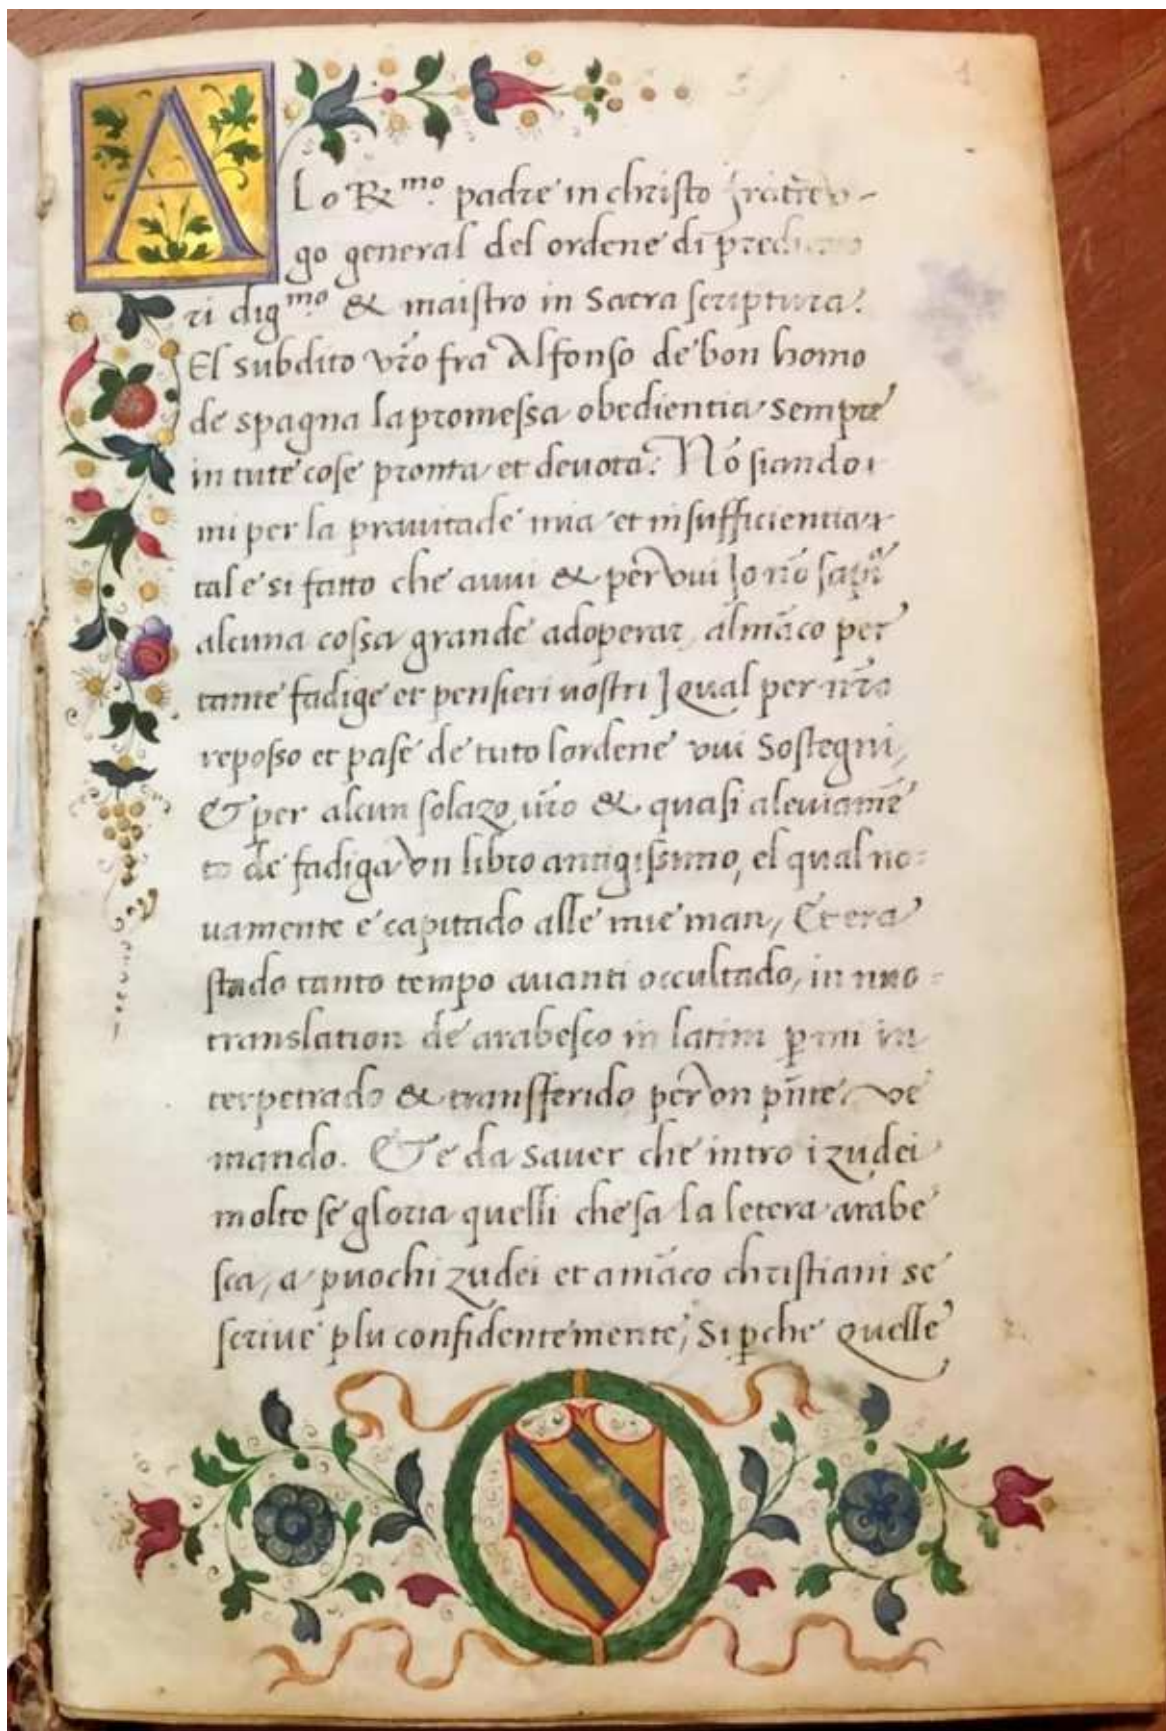 A
Lo R.mo padre in christo fratre v-
go general del ordene di predica
ri dig.mo & maistro in Sacra scriptura.
El subdito vrõ fra Alfonso de bon homo
de spagna la promessa obedientia sempre
in tute cose pronta et devota. Nõ siando
mi per la pravitade mia et insufficientia
tal e si fatto che a vui & per vui Jo nõ
alcuna cossa grande adoperar, almãco per
tante fadige et pensieri vostri J qual per nrõ
reposso et pase de tuto lordene vui Sostegni,
Et per alcun solazo vrõ & quasi aleviamẽ
to de fadiga Un libro antigissimo, el qual no=
uamente e capitado alle mie man, Et era
stado tanto tempo auanti occultado, in nuo=
translation de arabesco in latin p mi in
terpetrado & transferido per on pñte ve
mando. Et e da saver che intro i zudei
molto se gloria quelli che sa la letera arabe
sca, a puochi zudei et a mãco christiani se
scrive plu confidentemente, Si pche quelle